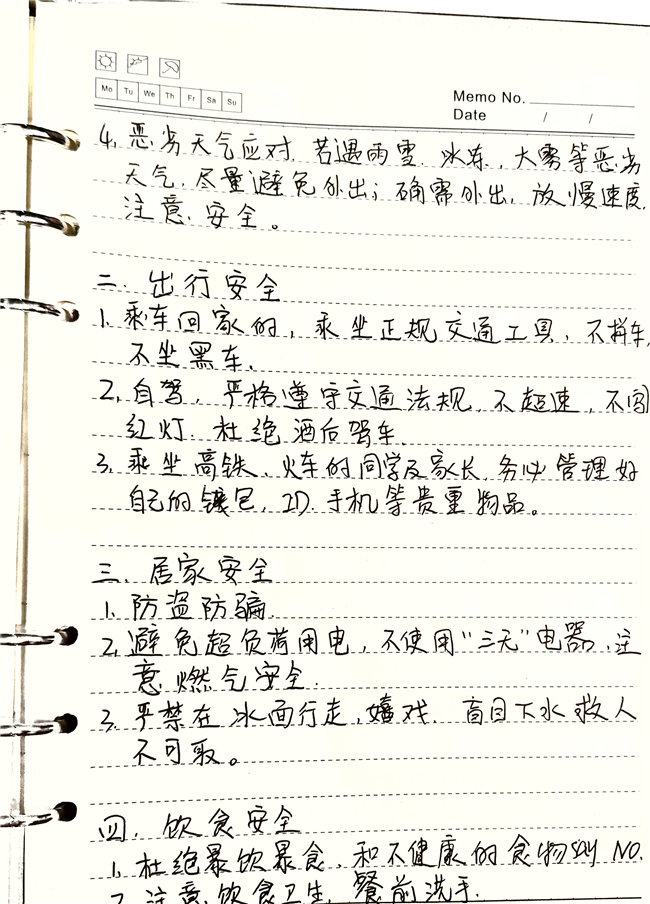 Mo Tu We Th Fr Sa Su
Memo No.
Date / /
4. 恶劣天气应对. 若遇雨雪. 冰冻, 大雾等恶劣
天气, 尽量避免外出; 确需外出, 放慢速度,
注意安全。
二. 出行安全
1. 乘车回家的, 乘坐正规交通工具, 不拼车,
不坐黑车.
2, 自驾, 严格遵守交通法规, 不超速, 不闯
红灯. 杜绝酒后驾车.
3, 乘坐高铁、火车的同学及家长, 务必管理好
自己的钱包, ID. 手机等贵重物品。
三. 居家安全
1. 防盗防骗.
2, 避免超负荷用电, 不使用“三无”电器, 注
意燃气安全.
3, 严禁在冰面行走, 嬉戏. 盲目下水救人
不可取。
四. 饮食安全
1, 杜绝暴饮暴食, 和不健康的食物SAY NO.
2. 注意饮食卫生, 餐前洗手.